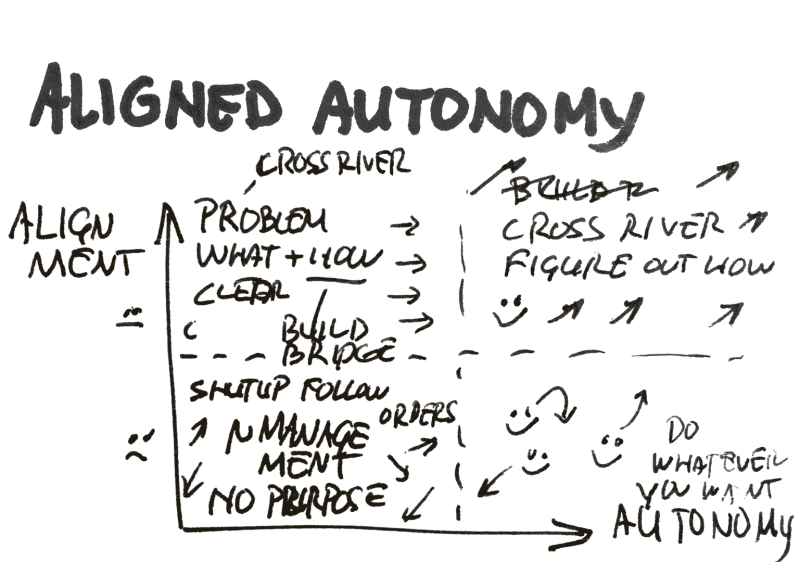 ALIGNED AUTONOMY
CROSS RIVER
ALIGN
MENT
PROBLEM
WHAT + HOW
CLEAR
C
BUILD
BRIDGE
CROSS RIVER
FIGURE OUT HOW
SHUTUP FOLLOW
ORDERS
MANAGE
MENT
NO PURPOSE
DO
WHATEVER
YOU WANT
AUTONOMY